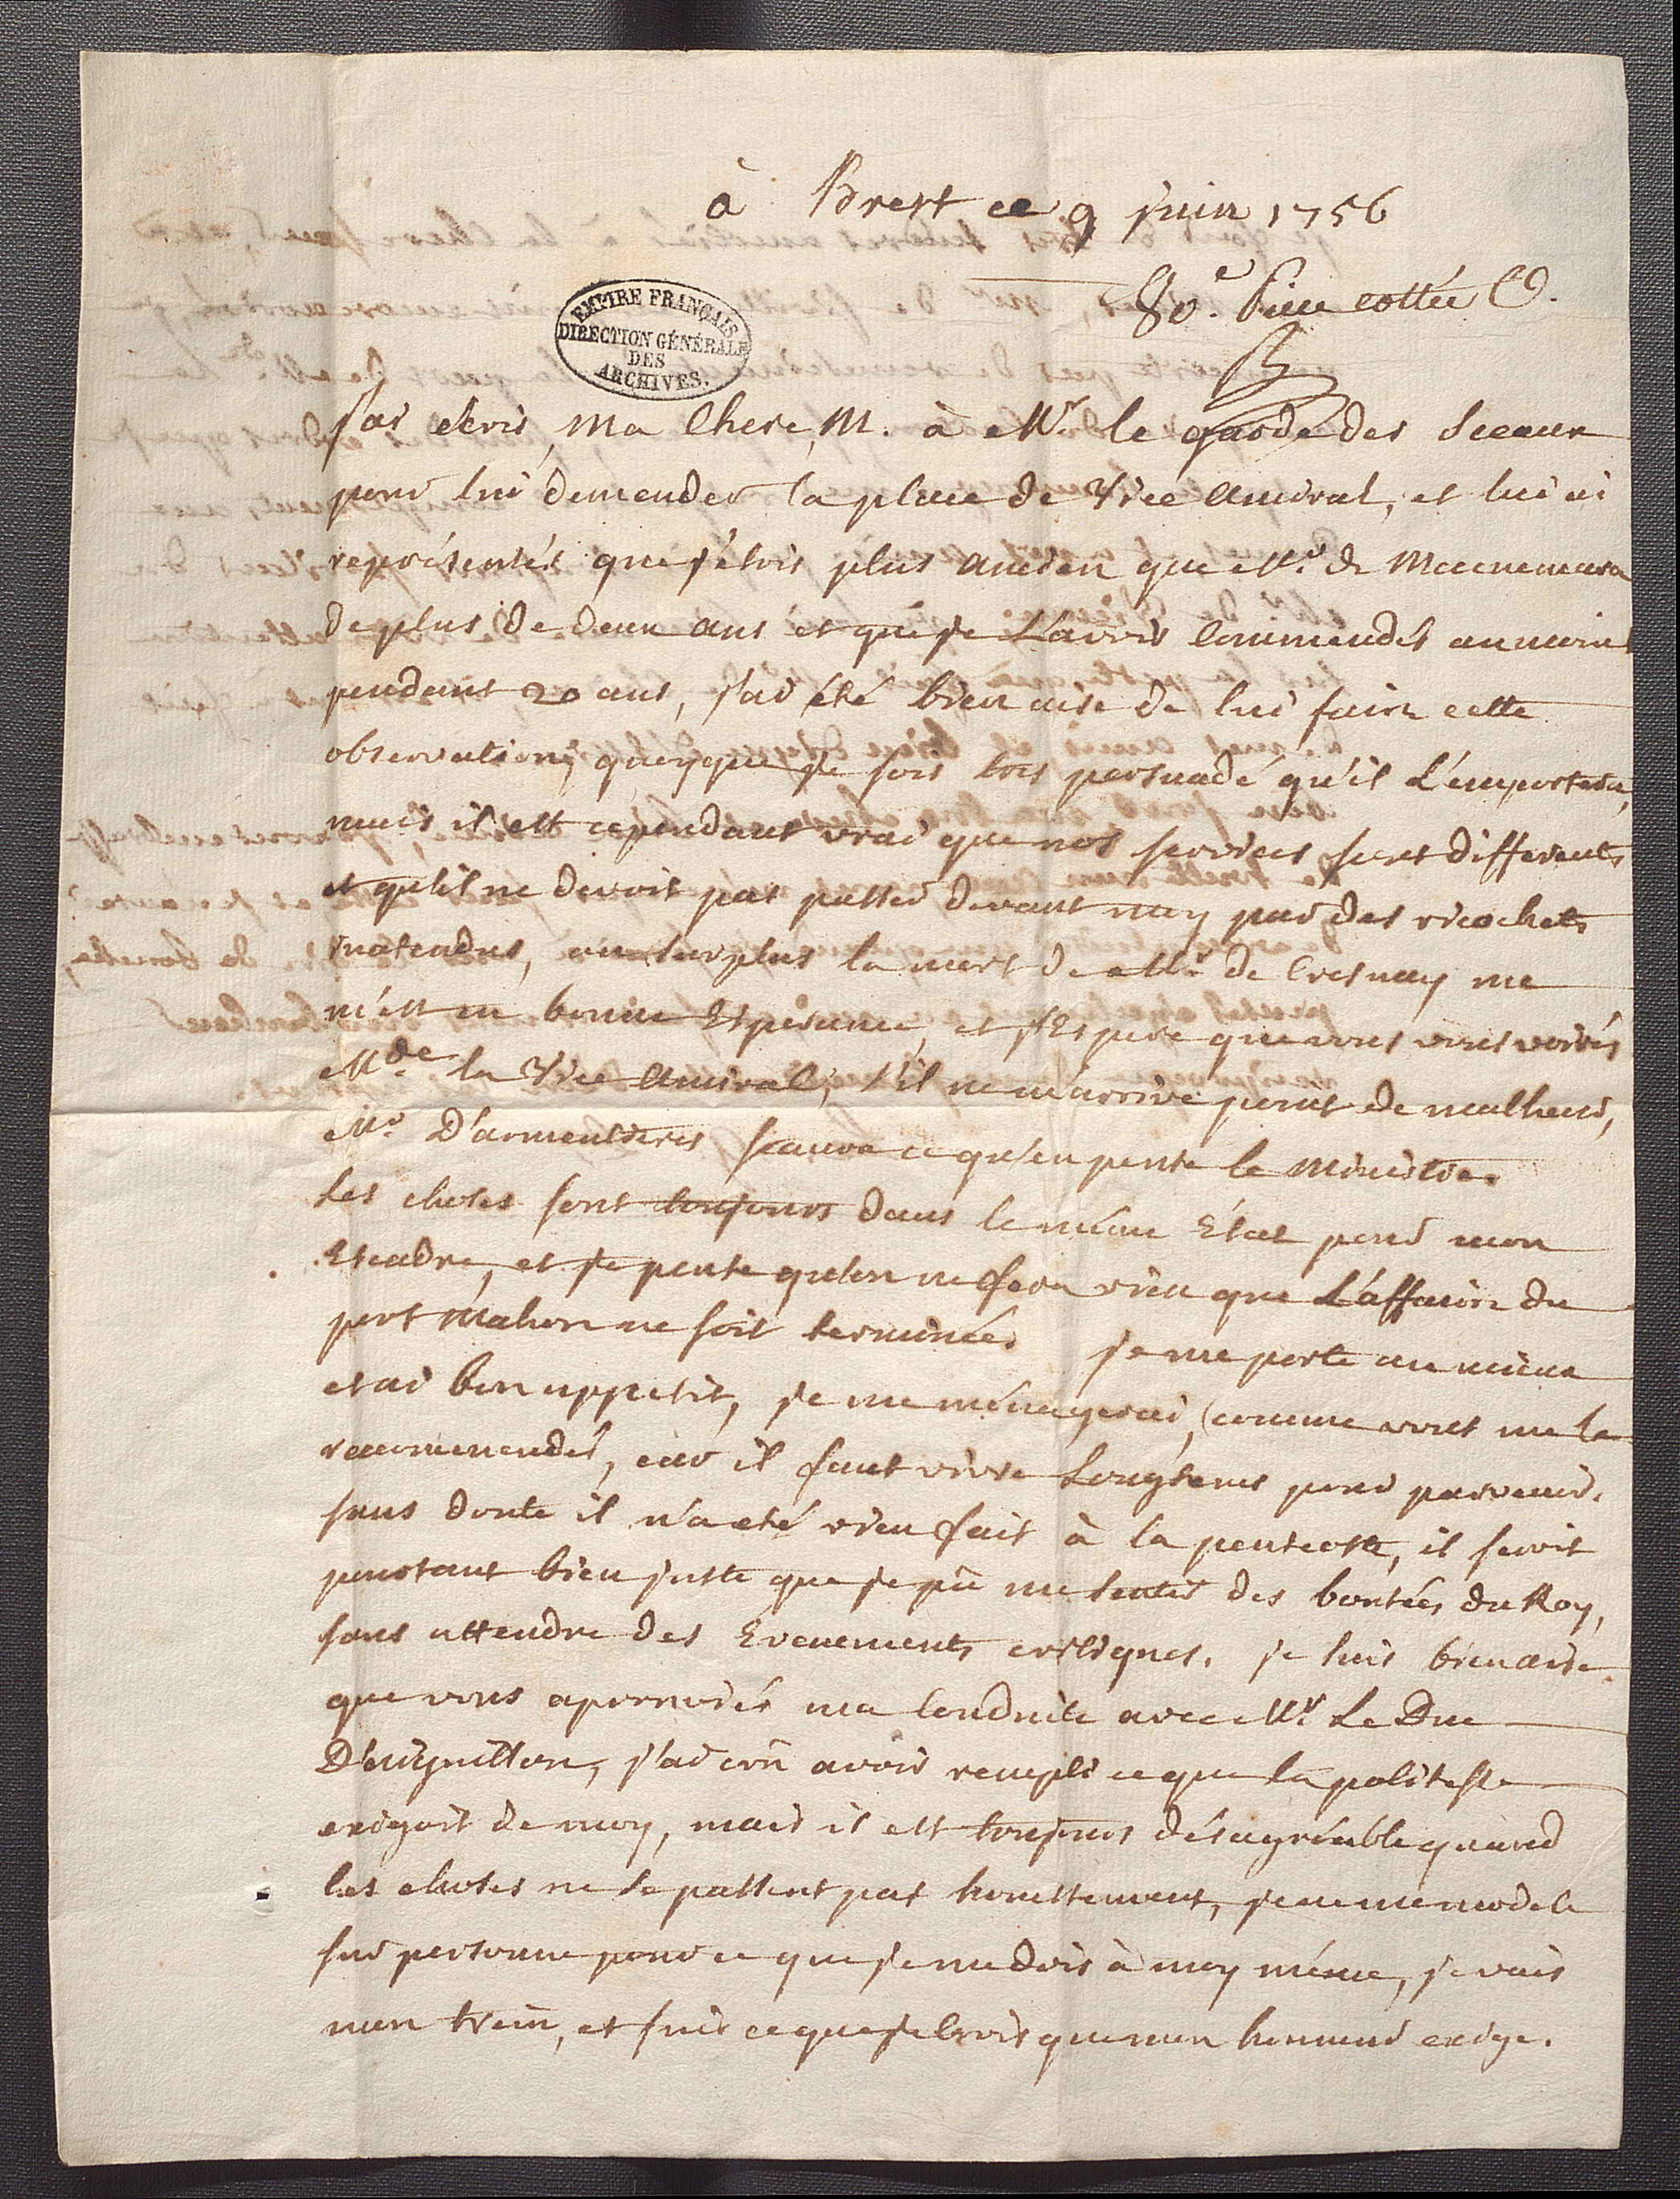 à Brest ce 9 juin 1756
80.e Piece cottée O.
EMPIRE FRANÇAIS
DIRECTION GÉNÉRALE
DES
ARCHIVES.
J'ai ecris, Ma Chere, M. à Mr. le garde des Sceaux
pour lui demender la place de Vice Amiral, et lui ai
représentés que j'étois plus ancien que Mr. de Macnemara
de plus de deux ans et que je L'avois Commendés au moins
pendant 20 ans, j'ai été bien aise de lui faire cette
observation, quoyque je sois tres persuadé qu'il L'emportera,
mais il est cependant vrai que nos services sont differents
et qu'il ne devoit pas passer devant moy par des ricochets
inatendus, au surplus la mort de Mr. de Cresnay me
met en bonne Esperance, et j'Espere que vous vous voirés
Mde. la Vice Amiral, s'il ne m'arrive point de malheur,
Mr. D'armentieres sçaura ce qu'en pense le Ministre.
Les choses sont toujours dans le même Etat pour mon
Escadre, et je pense qu'on ne fera rien que L'affaire du
port Mahon ne soit terminée. je me porte au mieux
et ai bon appetit, je me ménagerai, comme vous me le
recommendés, car il faut vivre Longtems pour parvenir.
sans doute il n'a eté rien fait à la pentecoste, il seroit
pourtant bien juste que je pû me sentir des bontées du Roy,
sans attendre des Evenements critiques. je suis bien aise
que vous aprouviés ma Conduite avec Mr. Le Duc
D'aiguillon, j'ai crû avoir rempli ce que la politesse
exigoit de moy, mais il est toujours désagréable quand
les choses ne se passent pas honnettement, je ne me modele
sur personne pour ce que je me dois à moy même, je vais
mon train, et fais ce que je Crois que mon honneur exige.